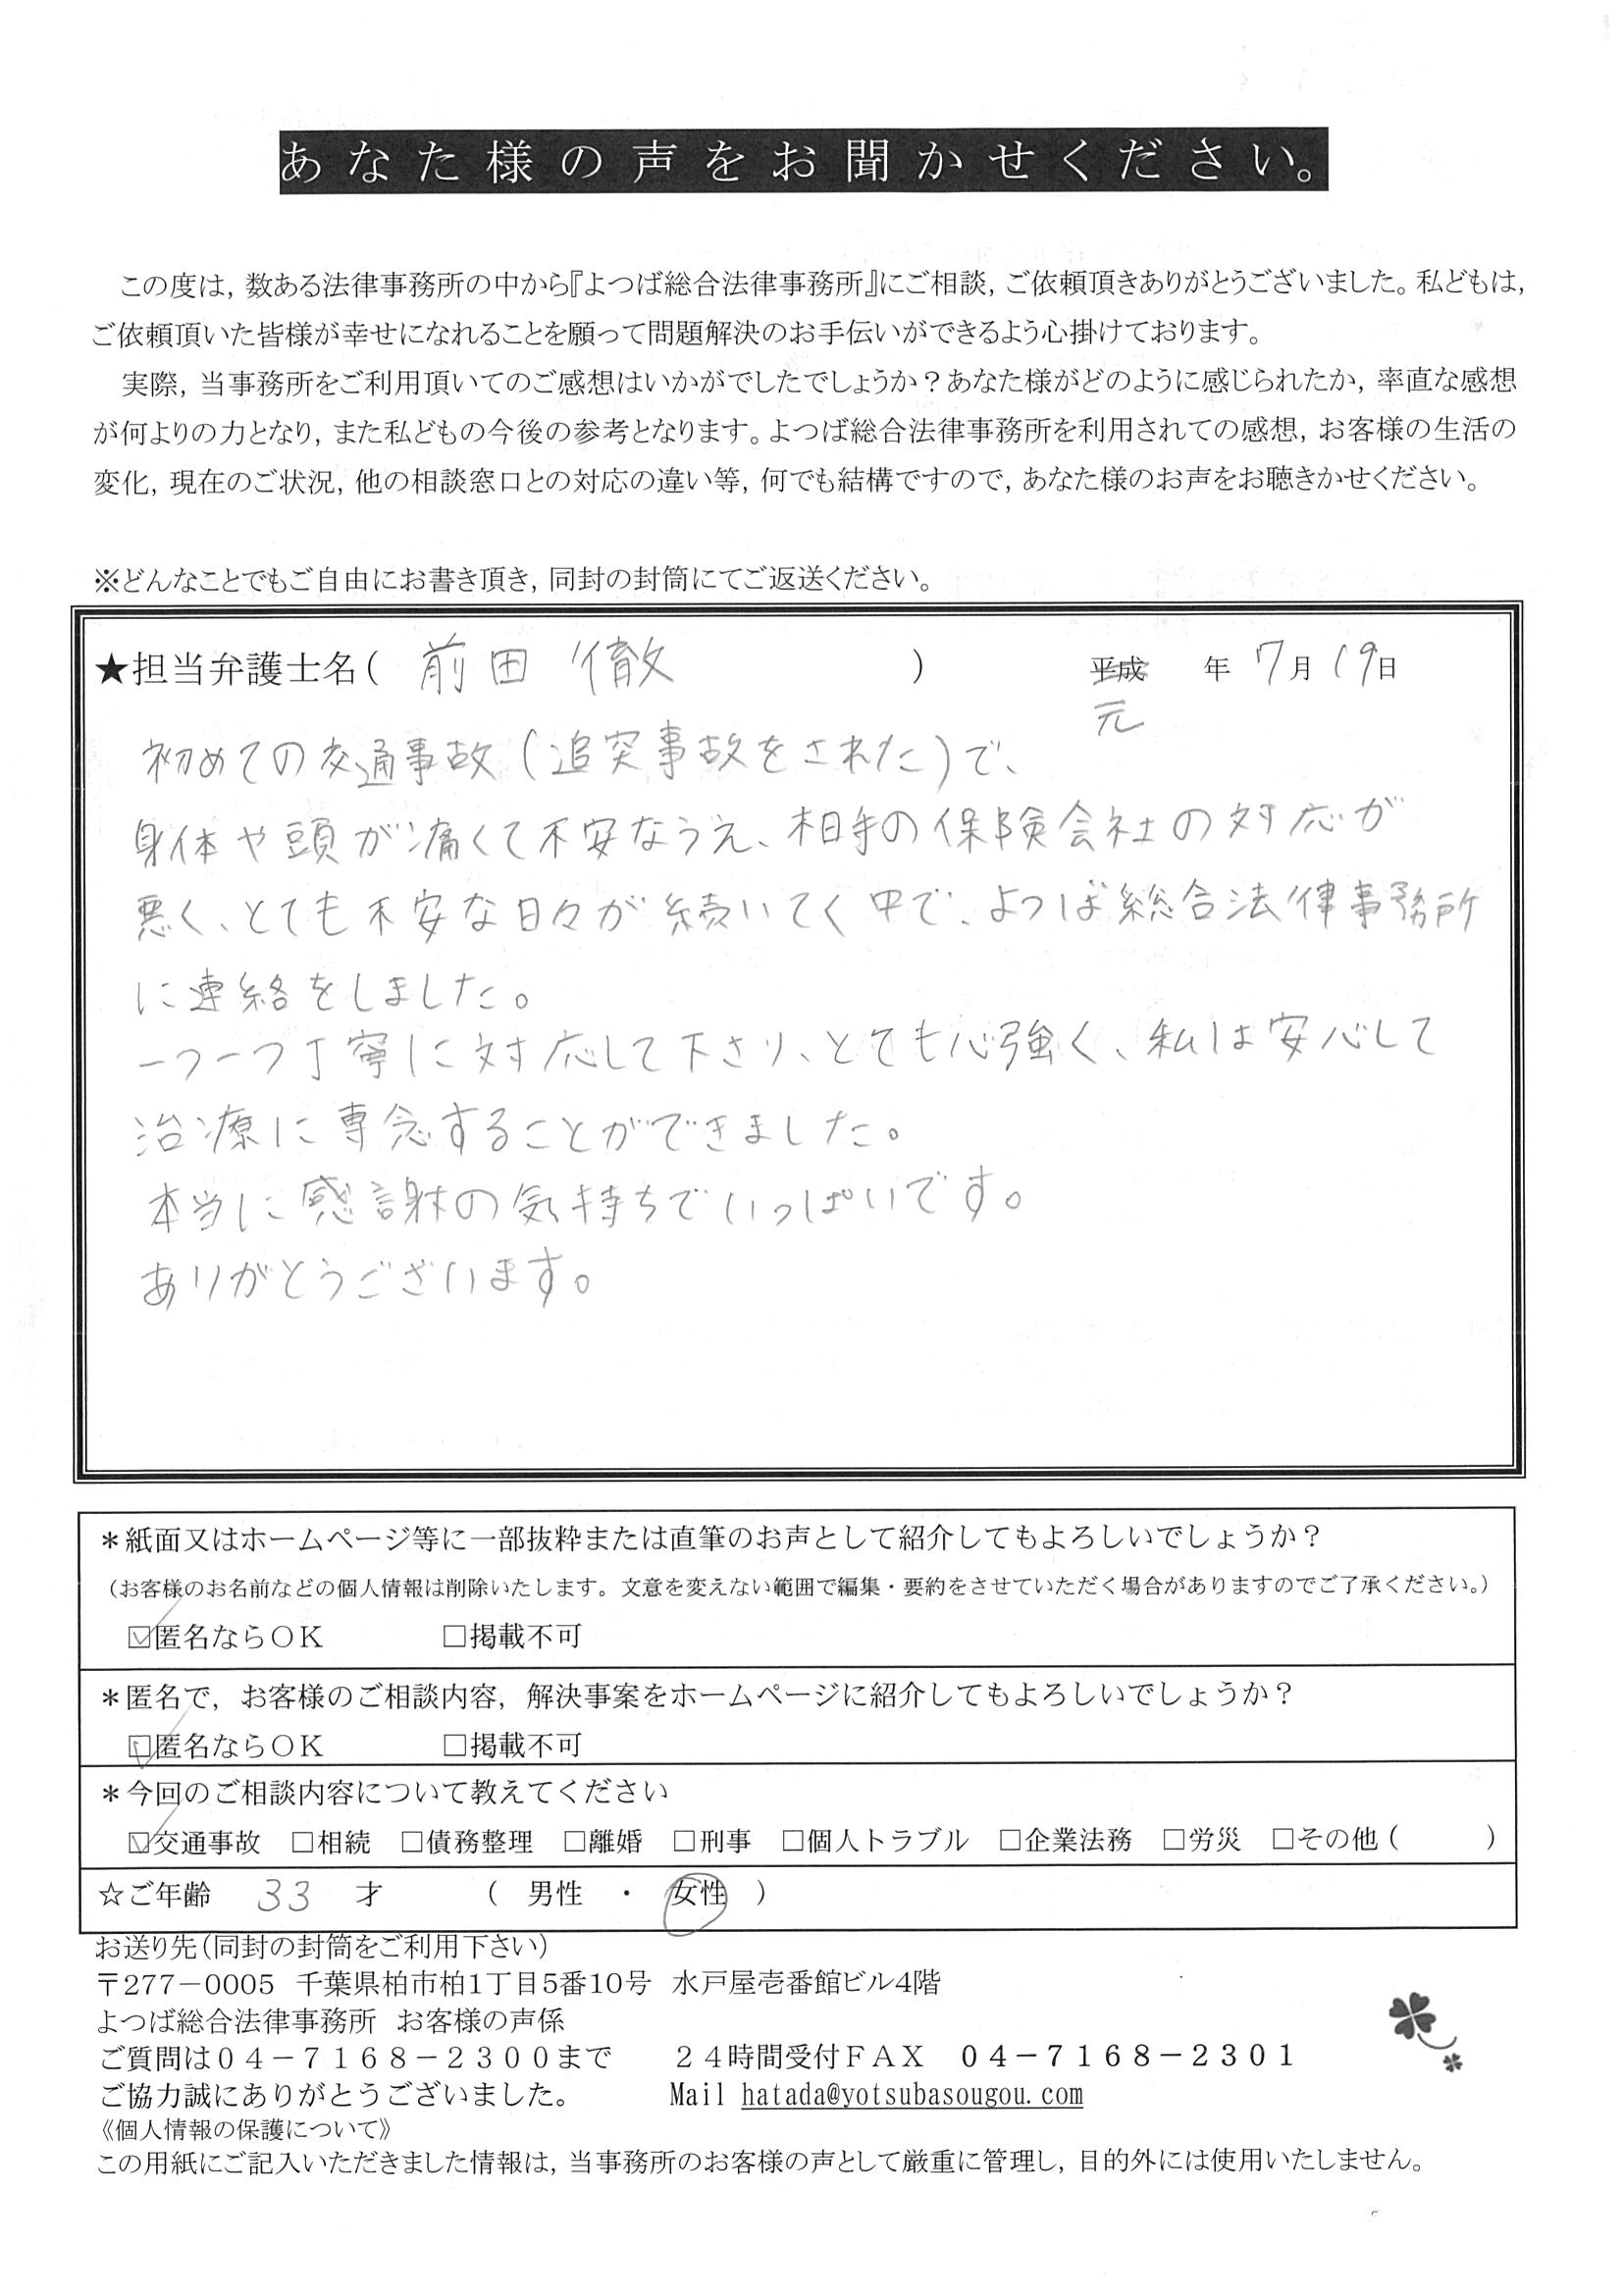 あなた様の声をお聞かせください。
この度は，数ある法律事務所の中から『よつば総合法律事務所』にご相談，ご依頼頂きありがとうございました。私どもは，
ご依頼頂いた皆様が幸せになれることを願って問題解決のお手伝いができるよう心掛けております。
実際，当事務所をご利用頂いてのご感想はいかがでしたでしょうか？あなた様がどのように感じられたか，率直な感想
が何よりの力となり，また私どもの今後の参考となります。よつば総合法律事務所を利用されての感想，お客様の生活の
変化，現在のご状況，他の相談窓口との対応の違い等，何でも結構ですので，あなた様のお声をお聴きかせください。
※どんなことでもご自由にお書き頂き，同封の封筒にてご返送ください。
★担当弁護士名（ 前田 徹 ） 平成 年 7月 19日
元
初めての交通事故（追突事故をされた）で、
身体や頭が痛くて不安なうえ、相手の保険会社の対応が
悪く、とても不安な日々が続いてく中で、よつば総合法律事務所
に連絡をしました。
一つ一つ丁寧に対応して下さり、とても心強く、私は安心して
治療に専念することができました。
本当に感謝の気持ちでいっぱいです。
ありがとうございます。
＊紙面又はホームページ等に一部抜粋または直筆のお声として紹介してもよろしいでしょうか？
（お客様のお名前などの個人情報は削除いたします。文意を変えない範囲で編集・要約をさせていただく場合がありますのでご了承ください。）
☑匿名ならＯＫ □掲載不可
＊匿名で，お客様のご相談内容，解決事案をホームページに紹介してもよろしいでしょうか？
☑匿名ならＯＫ □掲載不可
＊今回のご相談内容について教えてください
☑交通事故 □相続 □債務整理 □離婚 □刑事 □個人トラブル □企業法務 □労災 □その他（ ）
☆ご年齢 33 才 （ 男性 ・ 女性 ）
お送り先（同封の封筒をご利用下さい）
〒277－0005 千葉県柏市柏1丁目5番10号 水戸屋壱番館ビル4階
よつば総合法律事務所 お客様の声係
ご質問は０４－７１６８－２３００まで ２４時間受付ＦＡＸ ０４－７１６８－２３０１
ご協力誠にありがとうございました。 Mail hatada@yotsubasougou.com
《個人情報の保護について》
この用紙にご記入いただきました情報は，当事務所のお客様の声として厳重に管理し，目的外には使用いたしません。